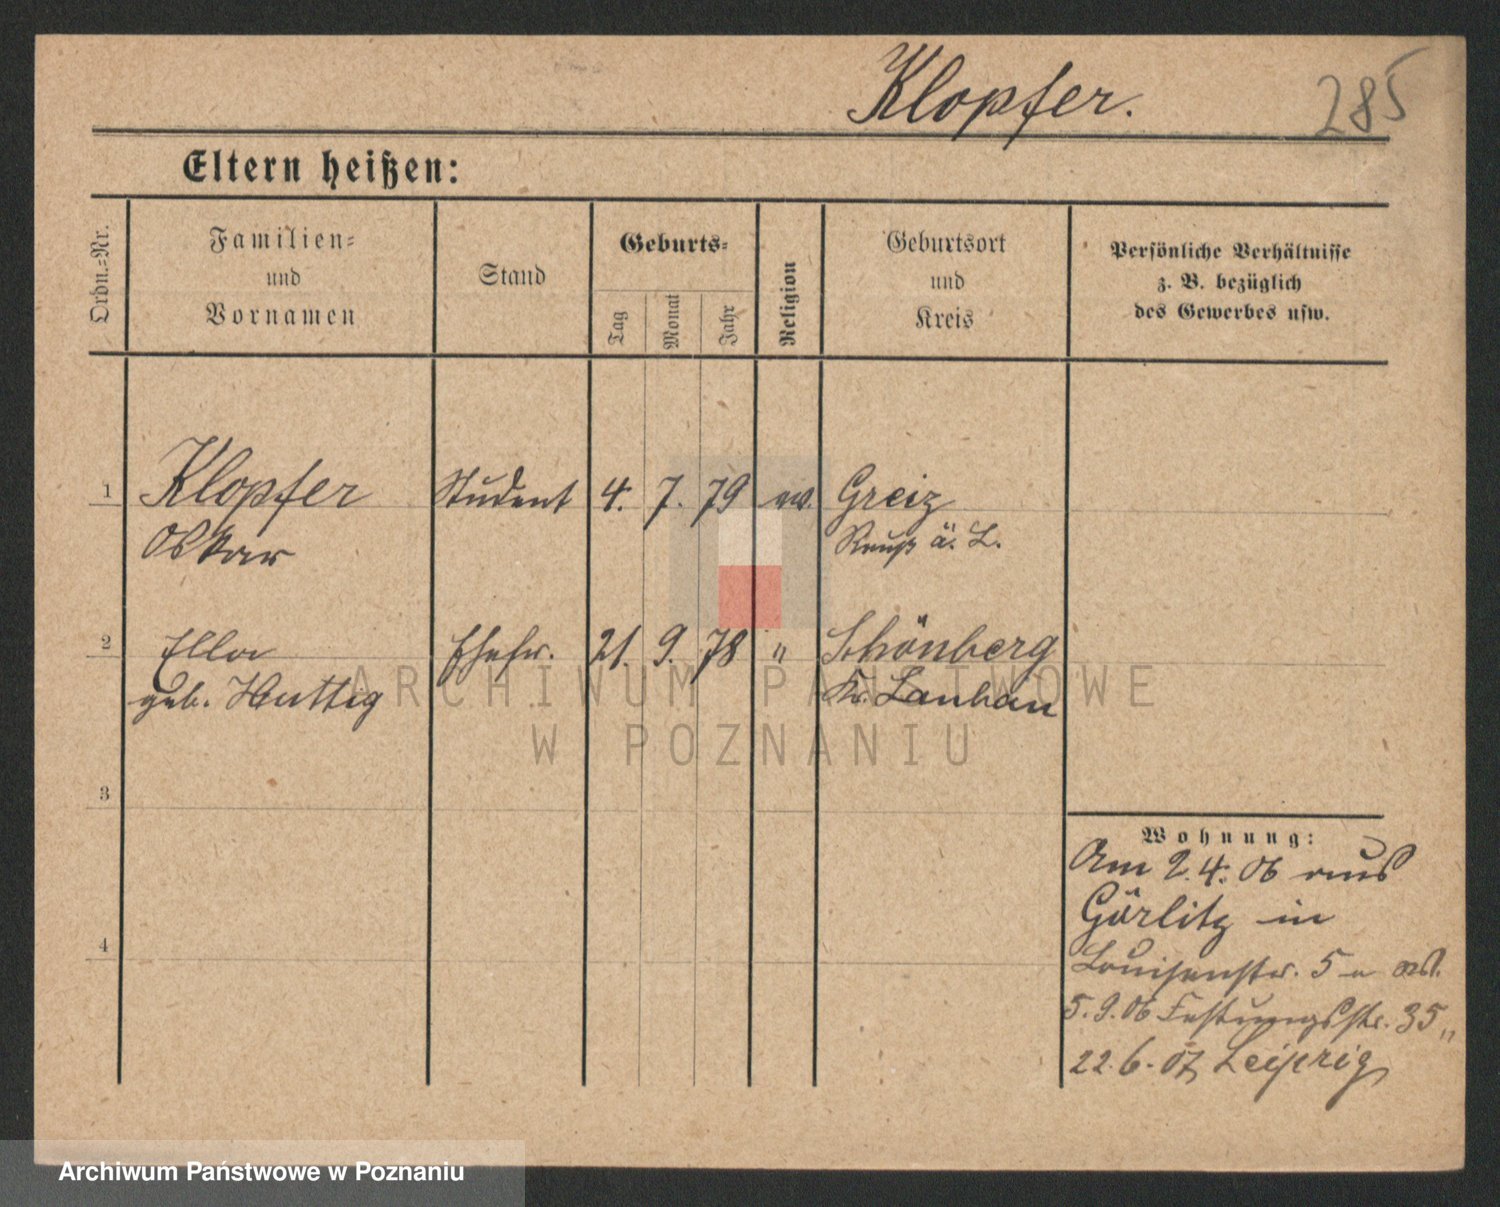 Klopfer.
285
Eltern heißen:
Ordn.=Nr.
Familien=
und
Vornamen
Stand
Geburts=
Tag
Monat
Jahr
Religion
Geburtsort
und
Kreis
Persönliche Verhältnisse
z. B. bezüglich
des Gewerbes usw.
1 Klopfer Student 4. 7. 79 ev. Greiz
Oskar Reuß ä. L.
2 Ella Ehefr. 21. 9. 78 " Schönberg
geb. Huttig Kr. Lauban
3
4
Wohnung:
Am 2.4.06 aus
Görlitz in
Louisenstr. 5
5.9.06 Festungsstr. 35
22.6.07 Leipzig
ARCHIWUM PAŃSTWOWE
W POZNANIU
Archiwum Państwowe w Poznaniu